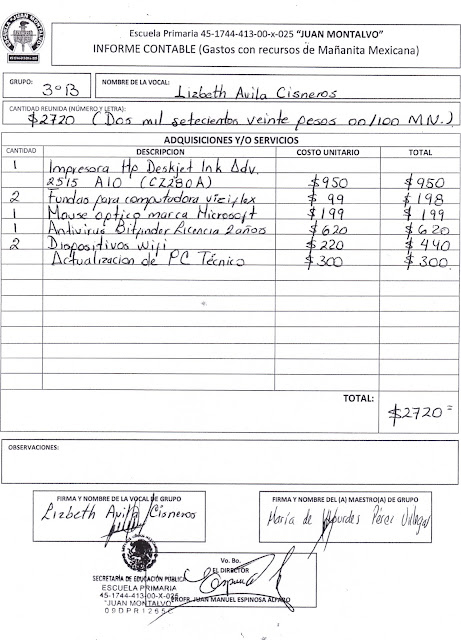 Escuela Primaria 45-1744-413-00-x-025 "JUAN MONTALVO"
INFORME CONTABLE (Gastos con recursos de Mañanita Mexicana)
GRUPO: 3º B NOMBRE DE LA VOCAL: Lizbeth Avila Cisneros
CANTIDAD REUNIDA (NÚMERO Y LETRA):
$2720 (Dos mil setecientos veinte pesos 00/100 M.N.)
ADQUISICIONES Y/O SERVICIOS
CANTIDAD DESCRIPCION COSTO UNITARIO TOTAL
1 Impresora Hp Deskjet Ink Adv.
2515 A10 (CZ280A) $950 $950
2 Fundas para computadora viciflex $ 99 $ 198
1 Mouse óptico marca Microsoft $ 199 $ 199
1 Antivirus Bitfinder Licencia 2 años $ 620 $ 620
2 Dispositivos Wifi $ 220 $ 440
Actualizacion de PC Técnico $ 300 $ 300
TOTAL: $2720=
OBSERVACIONES:
FIRMA Y NOMBRE DE LA VOCAL DE GRUPO
Lizbeth Avila Cisneros
FIRMA Y NOMBRE DEL (A) MAESTRO(A) DE GRUPO
María de Lourdes Pérez Villagal
Vo. Bo.
EL DIRECTOR
PROFR. JUAN MANUEL ESPINOSA ALFARO
SECRETARÍA DE EDUCACIÓN PÚBLICA
ESCUELA PRIMARIA
45-1744-413-00-X-025
"JUAN MONTALVO"
09DPR1265C